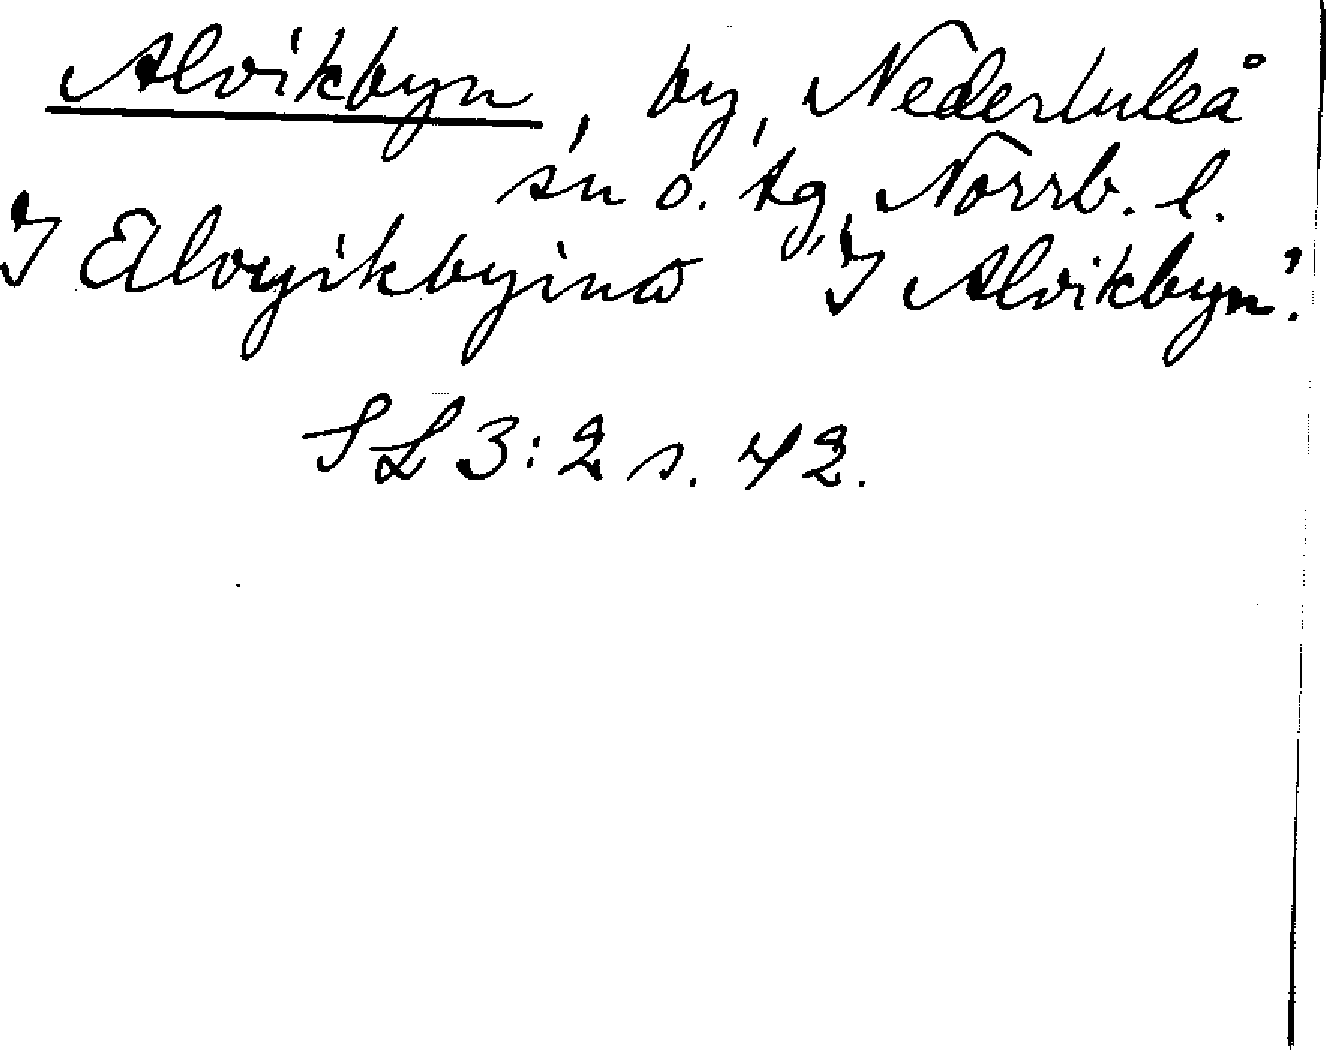 Alvikbyn, by, Nederluleå
sn o. tg, Norrb. l.
I Elvyikbyinω "I Alvikbyn".
SL 3:2 s. 42.